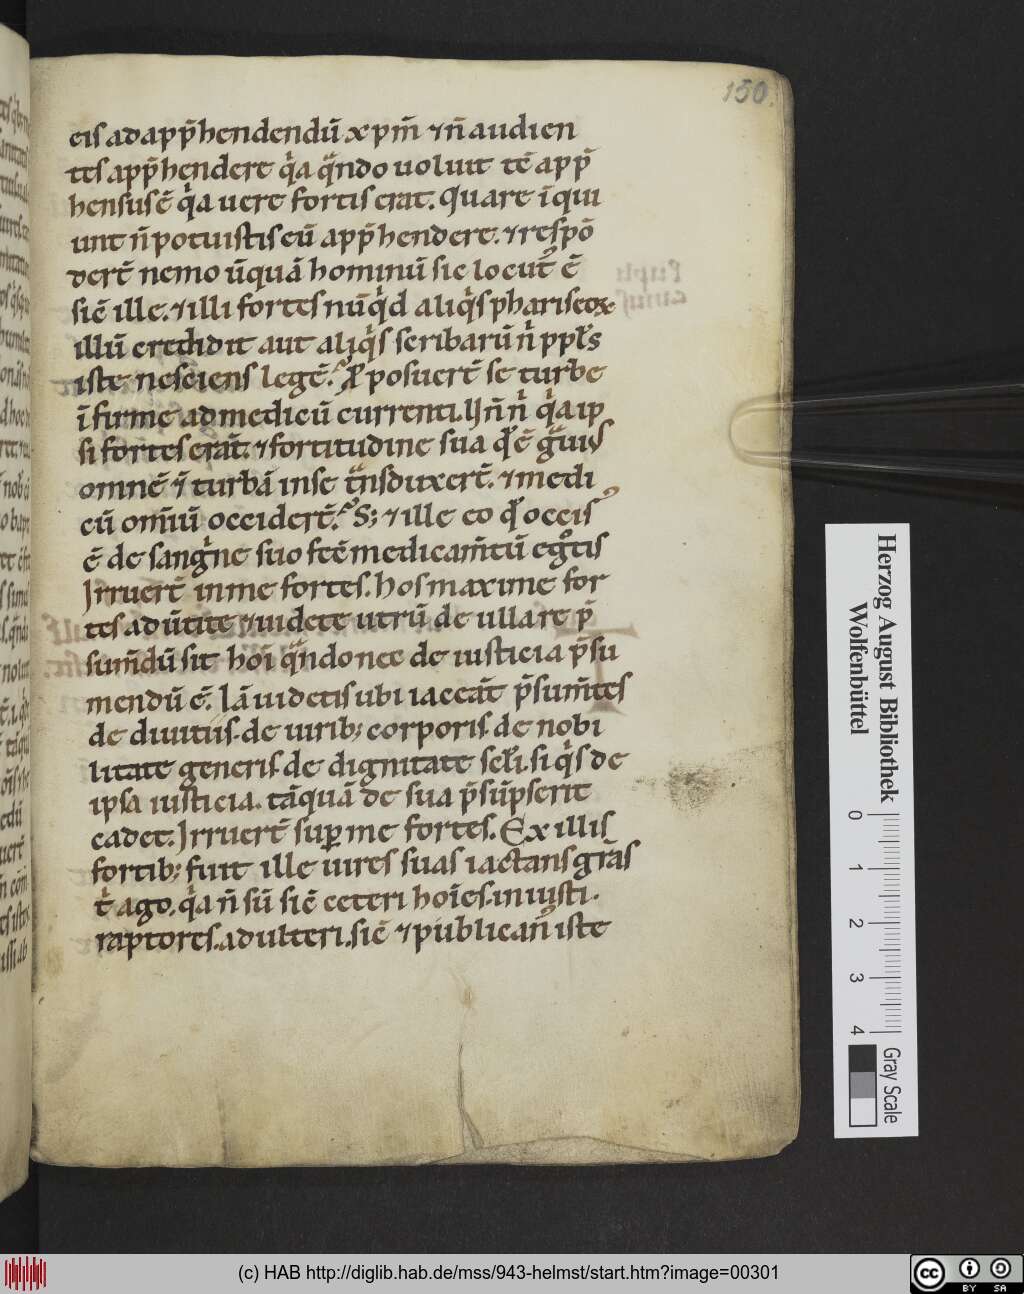 150.
eis ad app̄hendendū xp̄m ⁊ n̄ audien
tes app̄hendere qͥa qͣndo uoluit tē app̄
hensus ē qͥa uere fortis erat. Quare īqui
unt n̄ potuistis eū app̄hendere. ⁊ respō
derē nemo ūquā hominū sic locut᷒ ē
sic̄ ille. ⁊ illi fortes nūqͥd aliqͥs phariseoꝝ
illū credidit aut aliqͥs scribarū nͥ ppl̄s
iste nesciens legē. Ꝓposuerē se turbe
īfirme ad medicū currenti. hn̄ nͥ qͥa ip
si fortes erāt. ⁊ fortitudine sua qͩ ē gͣuiꝰ
omnē ⁊ turbā in se tͣnsduxerē. ⁊ medi
cū om̄iū occiderē. S; ⁊ ille eo qͩ occisꝰ
ē de sangͥne suo fcē medicam̄tū egͦtis
Irruerē in me fortes. hos maxime for
tes adūtite ⁊ uidete utrū de ulla re p̄
sum̄dū sit hoī qͣndo nec de iusticia p̄su
mendū ē. Iā uidetis ubi iaceāt p̄sum̄tes
de diuitiis. de uirib; corporis. de nobi
litate generis. de dignitate scl̄i. si qͥs de
ipsa iusticia. tāquā de sua p̄sūpserit
cadet. Irruerē suꝑ me fortes. Ex illis
fortib; fuit ille uires suas iactans grās
tͥ ago. qͥa n̄ sū sic̄ ceteri hoīes. iniusti.
raptores. adulteri. sic̄ ⁊ publican᷒ iste
Herzog August Bibliothek
Wolfenbüttel
0 1 2 3 4
Gray Scale
(c) HAB http://diglib.hab.de/mss/943-helmst/start.htm?image=00301
cc BY SA